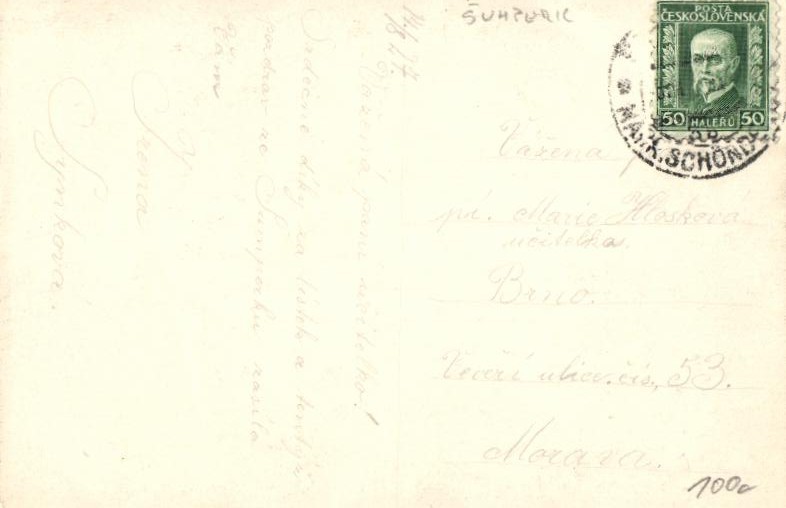 ŠUMPERK
POŠTA
ČESKOSLOVENSKÁ
50 HALÉŘŮ 50
MÄHR. SCHÖNB
Vážená
pí. Marie Hloskova
učitelka
Brno.
Veveří ulice čís. 53.
Morava.
100,-
Vážená paní učitelko!
Srdečné díky za lístek a
pozdrav ze Šumperku zasílá
Vám
Irena
Synková.